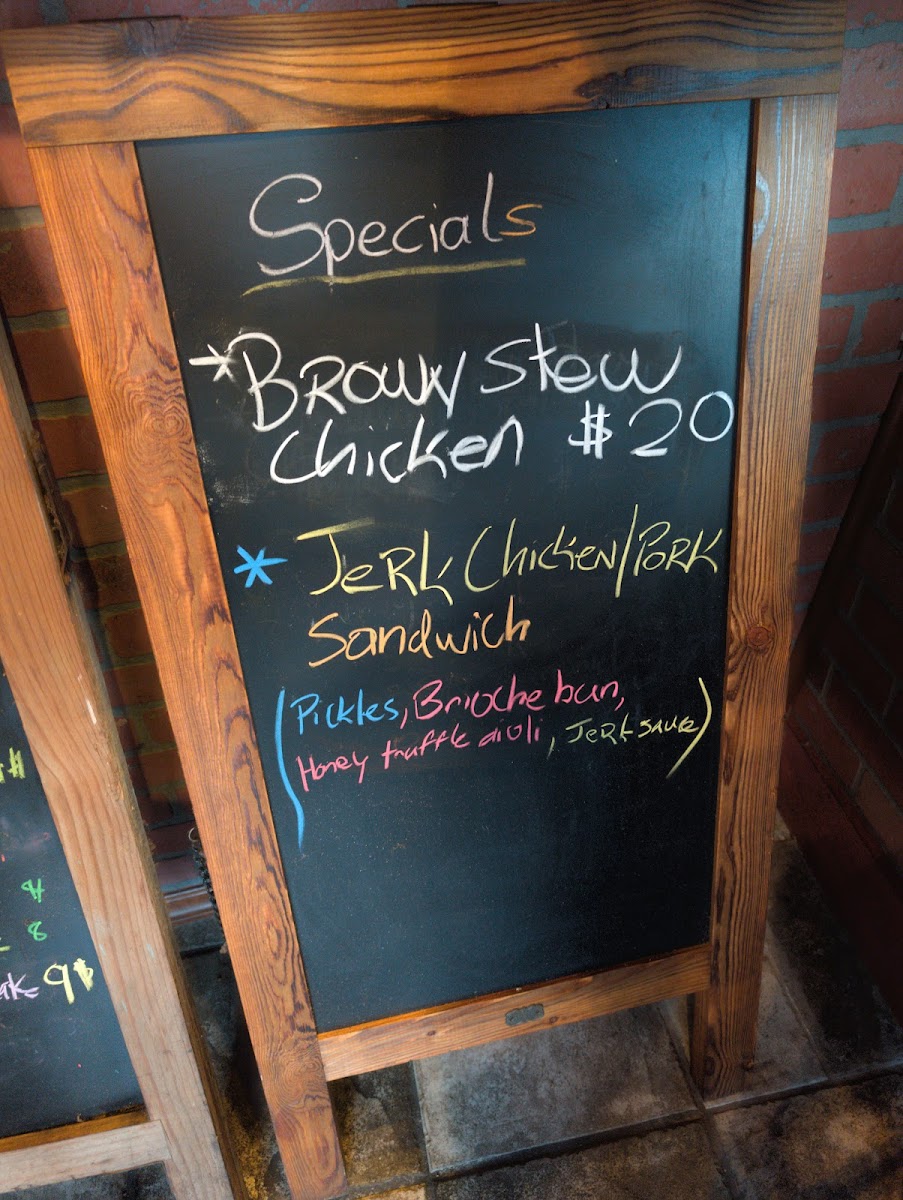 Specials
*Brown Stew
Chicken $20
* Jerk Chicken/Pork
Sandwich
(Pickles, Brioche bun,
Honey truffle aioli, Jerk sauce)
$
$
8
9$